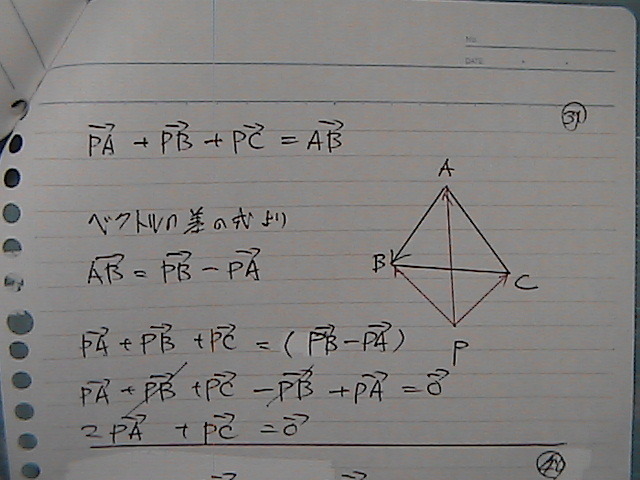 NO.
DATE
PA→ + PB→ + PC→ = AB→
ベクトルの差の式より
AB→ = PB→ - PA→
PA→ + PB→ + PC→ = (PB→ - PA→)
PA→ + PB→ + PC→ - PB→ + PA→ = 0→
2PA→ + PC→ = 0→
A
B
C
P